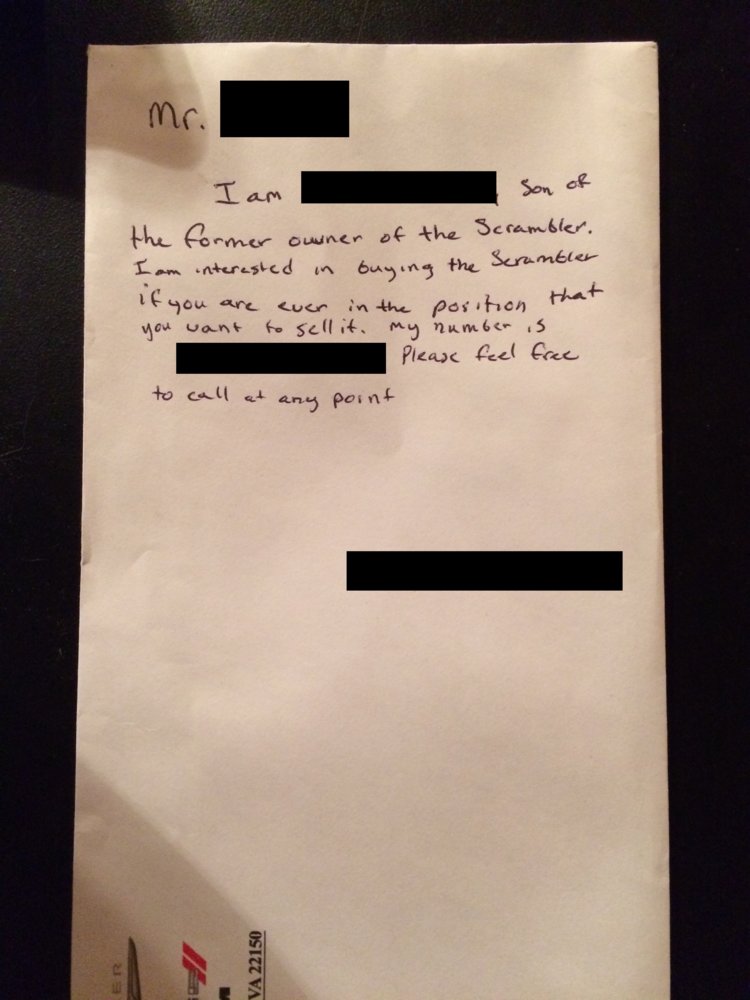 Mr.
I am son of
the former owner of the Scrambler.
I am interested in buying the Scrambler
if you are ever in the position that
you want to sell it. My number is
Please feel free
to call at any point
ER
VA 22150